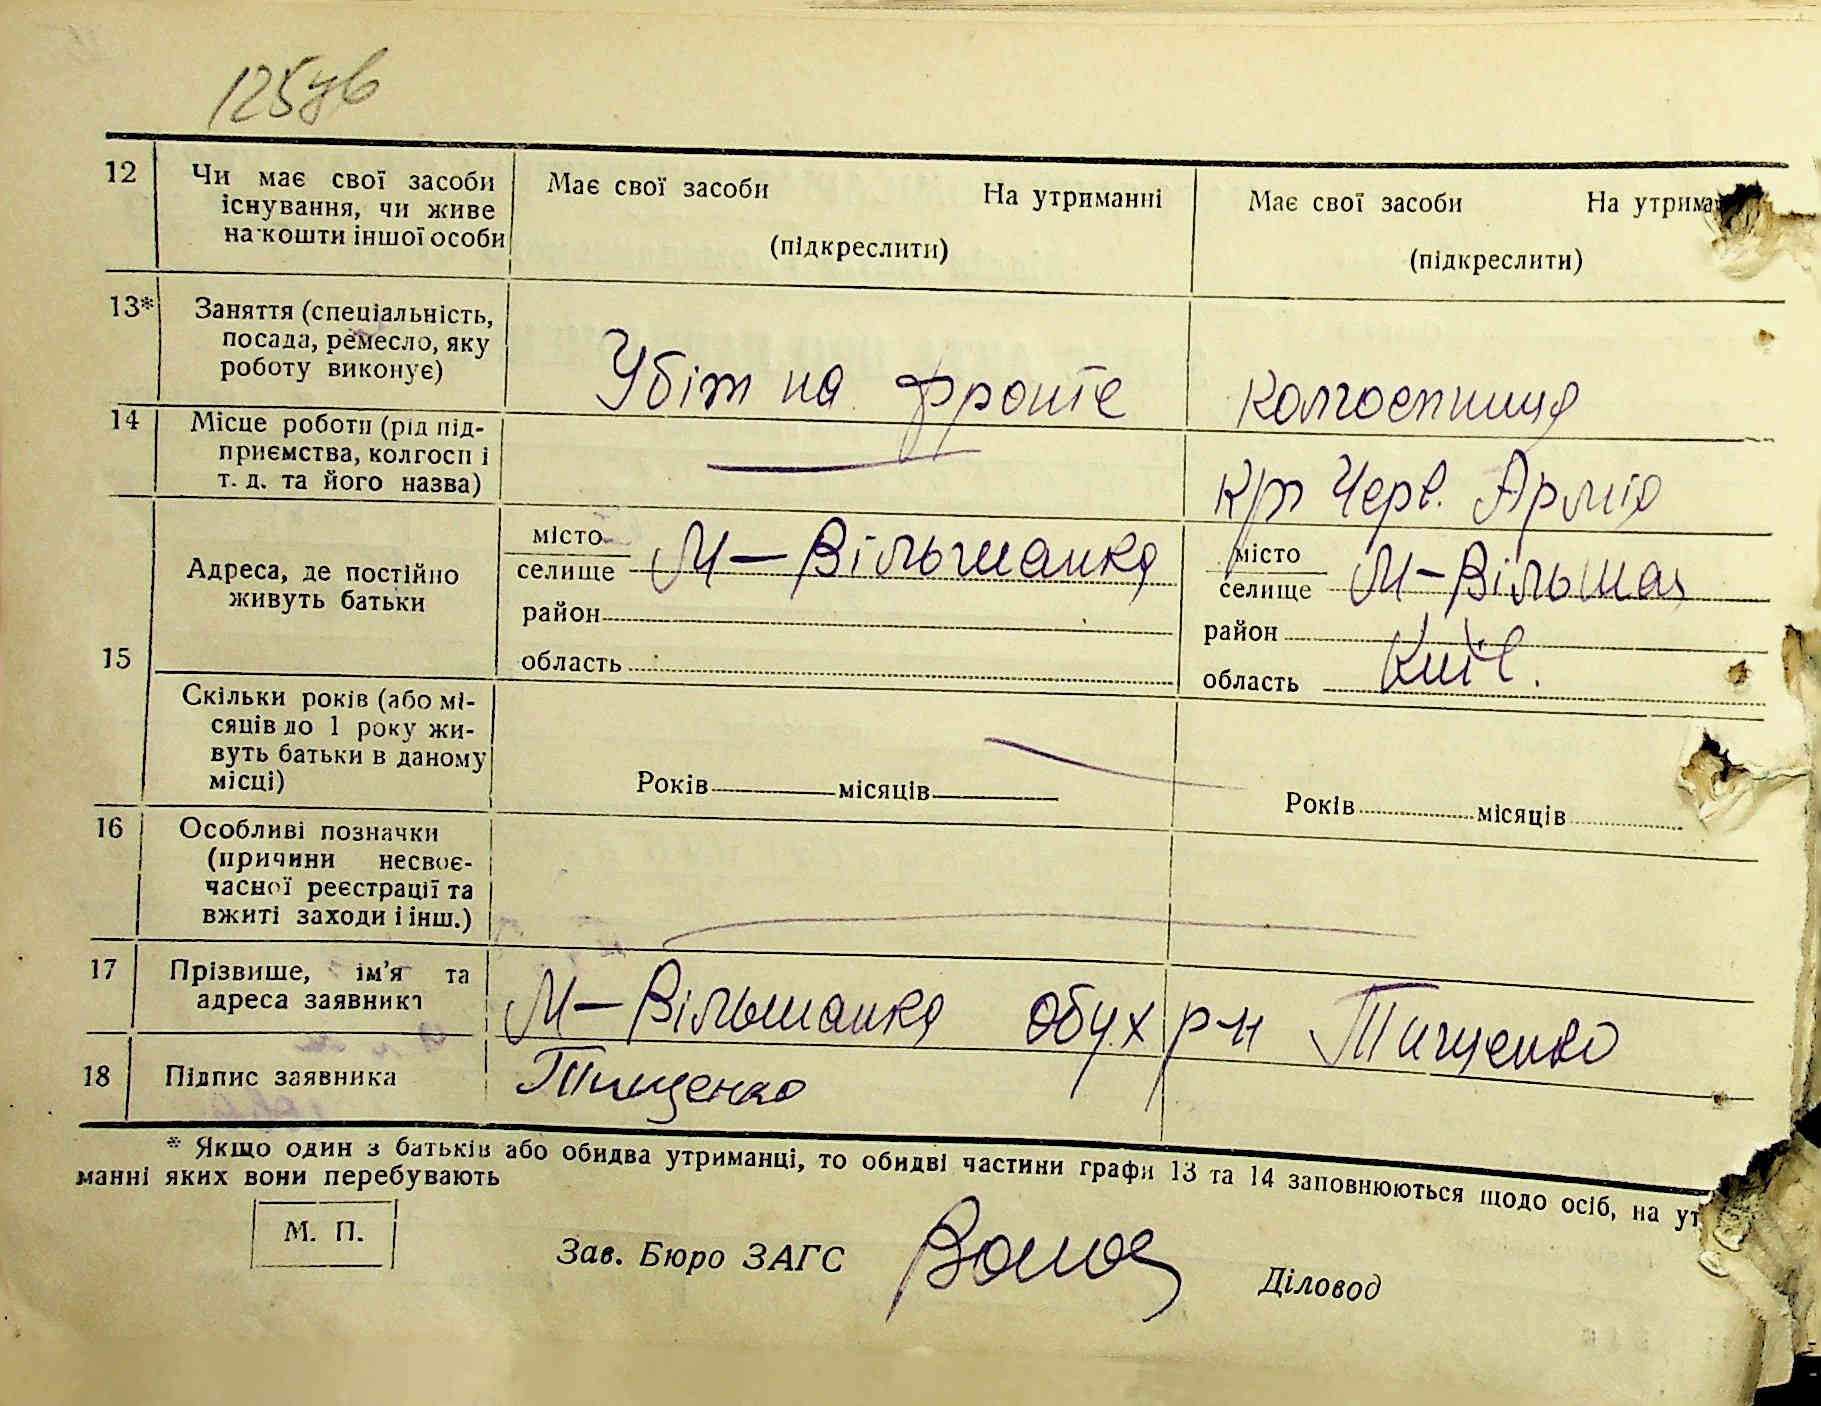 125зв
12 Чи має свої засоби існування, чи живе на кошти іншої особи
Має свої засоби На утриманні
(підкреслити)
Має свої засоби На утрима
(підкреслити)
13* Заняття (спеціальність, посада, ремесло, яку роботу виконує)
Убіт на фронте
колгоспниця
14 Місце роботи (рід підприємства, колгосп і т. д. та його назва)
к/г Черв. Армія
15 Адреса, де постійно живуть батьки
місто
селище М-Вільшанка
район
область
місто
селище М-Вільшан
район
область Київ.
Скільки років (або місяців до 1 року живуть батьки в даному місці)
Років місяців
Років місяців
16 Особливі позначки (причини несвоєчасної реєстрації та вжиті заходи і інш.)
17 Прізвище, ім'я та адреса заявника
М-Вільшанка Обух р-н Тищенко
18 Підпис заявника Тищенко
* Якщо один з батьків або обидва утриманці, то обидві частини графи 13 та 14 заповнюються щодо осіб, на ут
манні яких вони перебувають
М. П.
Зав. Бюро ЗАГС
Діловод